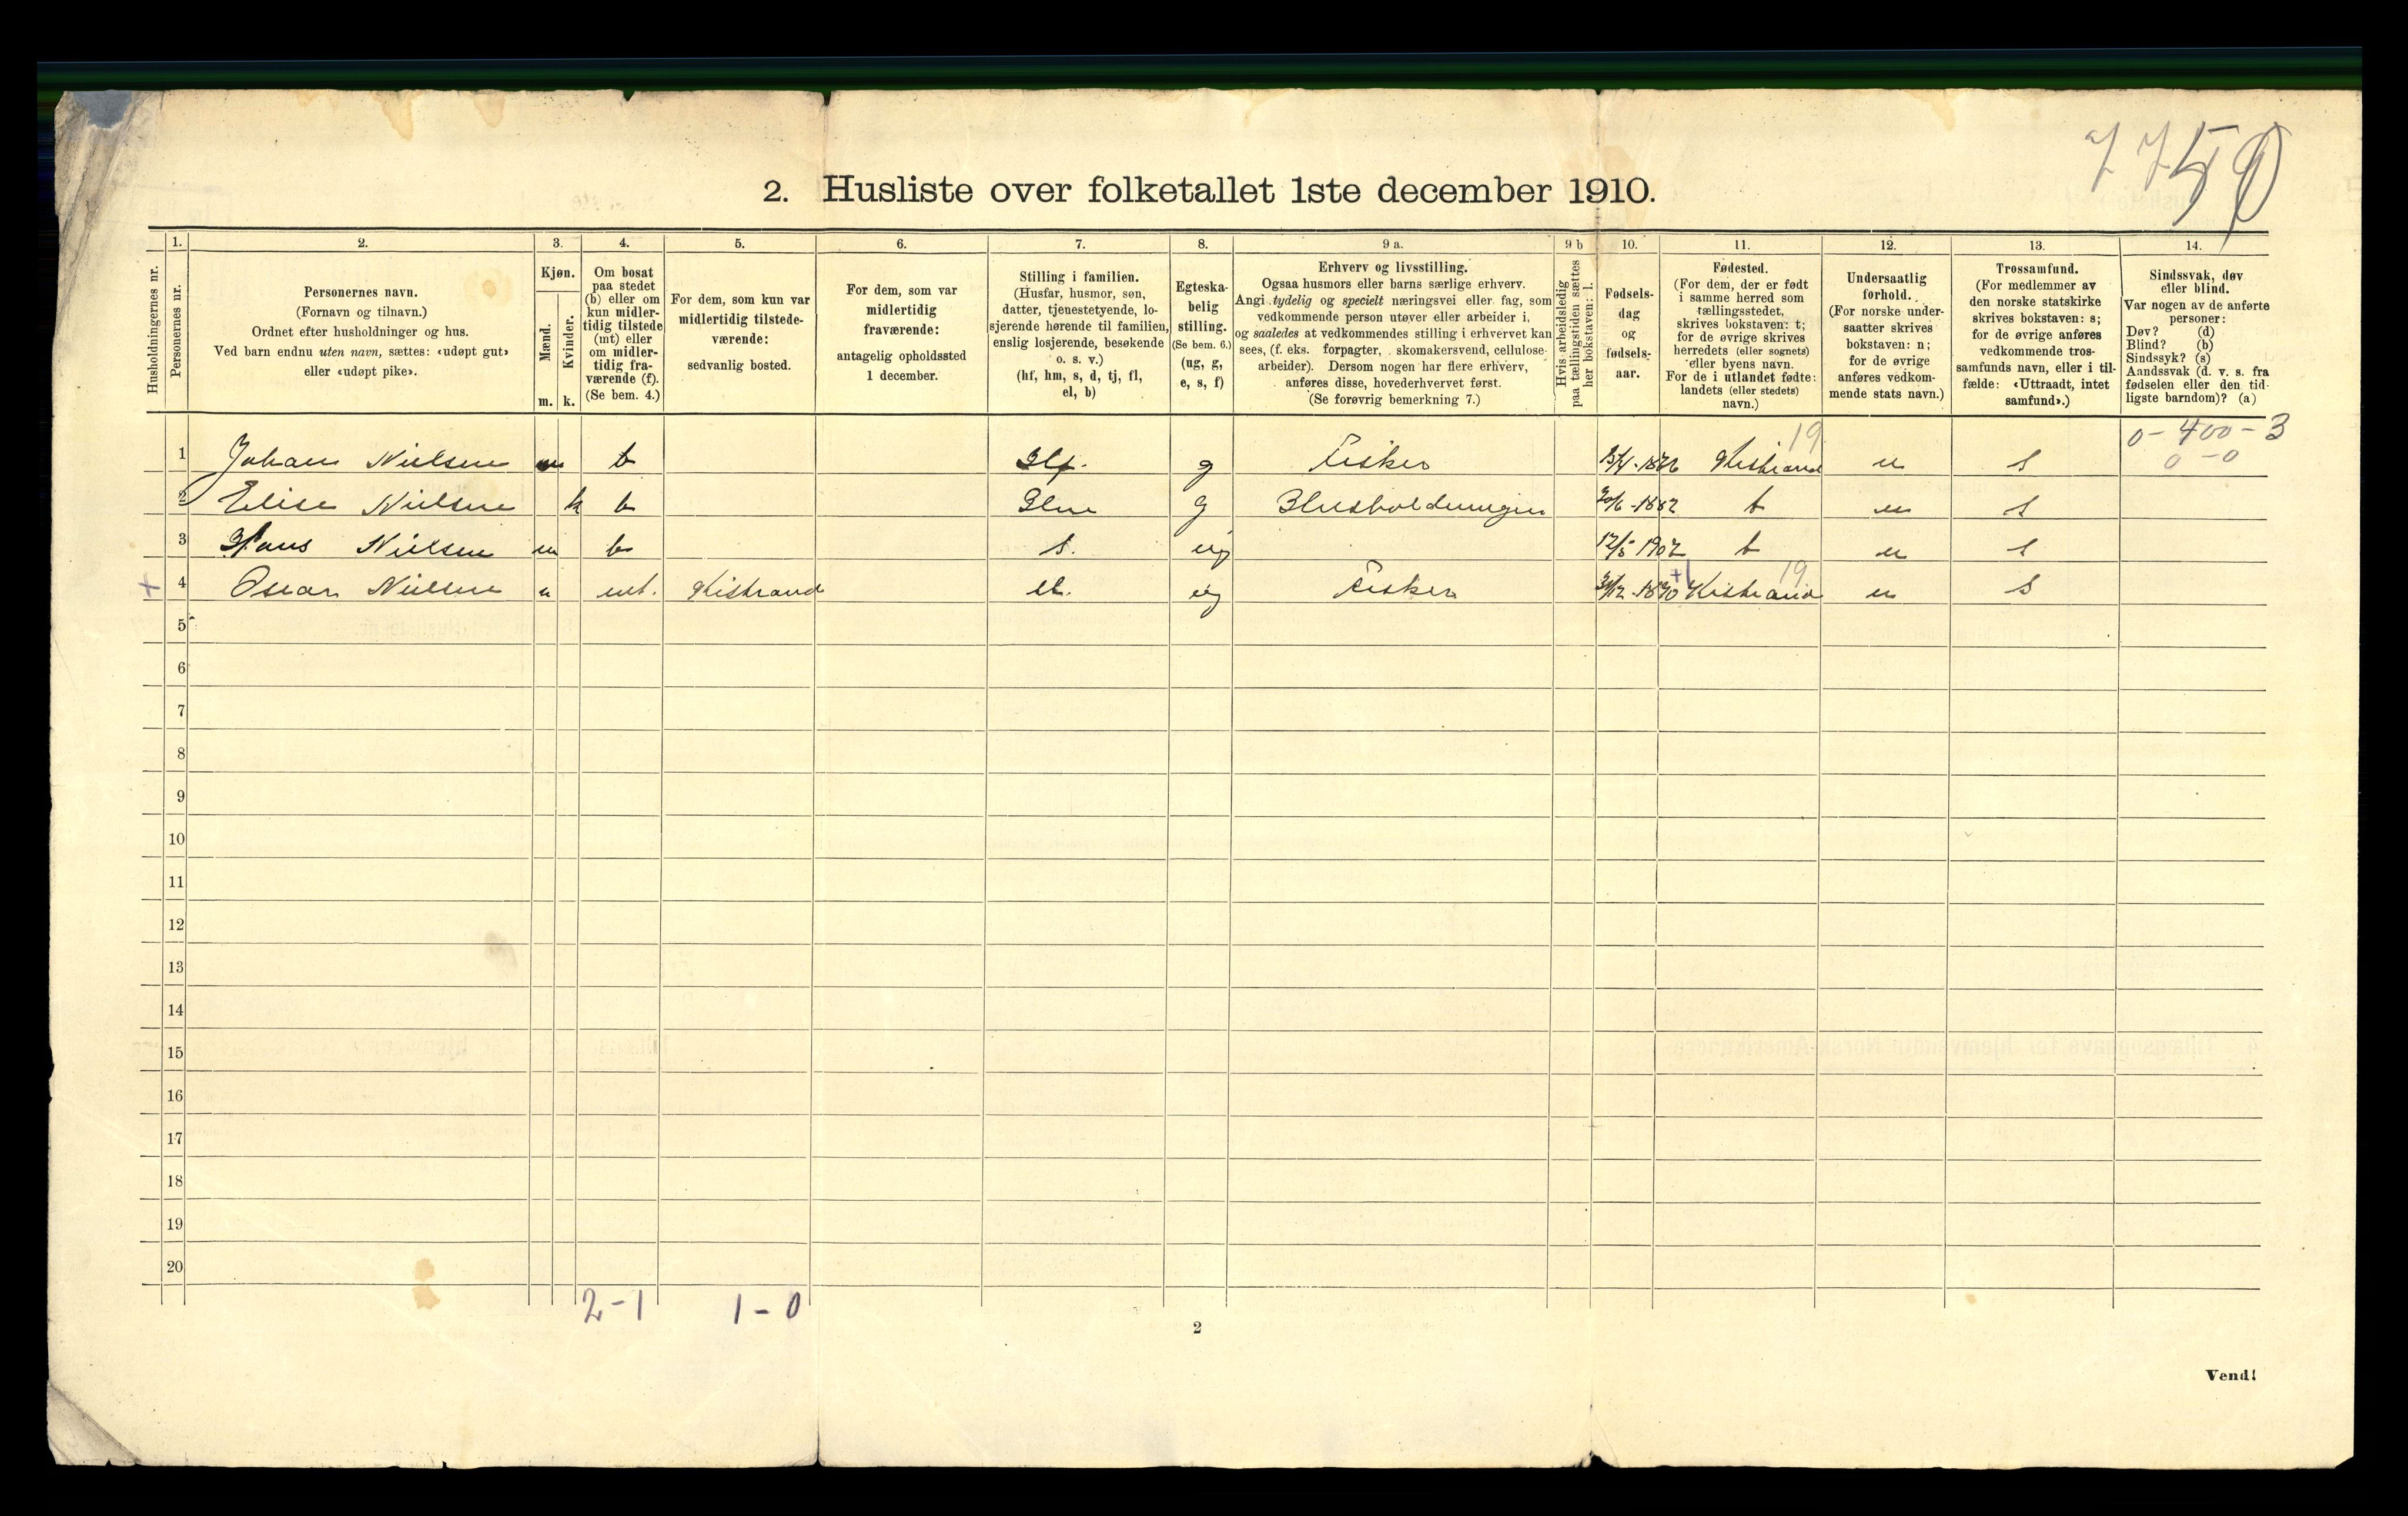 7750
2. Husliste over folketallet 1ste december 1910.
1. 2. 3. 4. 5. 6. 7. 8. 9 a. 9 b 10. 11. 12. 13. 14.
Husholdningernes nr.
Personernes nr.
Personernes navn.
(Fornavn og tilnavn.)
Ordnet efter husholdninger og hus.
Ved barn endnu uten navn, sættes: «udøpt gut»
eller «udøpt pike».
Kjøn.
Mænd.
Kvinder.
m. k.
Om bosat
paa stedet
(b) eller om
kun midler-
tidig tilstede
(mt) eller
om midler-
tidig fra-
værende (f).
(Se bem. 4.)
For dem, som kun var
midlertidig tilstede-
værende:
sedvanlig bosted.
For dem, som var
midlertidig
fraværende:
antagelig opholdssted
1 december.
Stilling i familien.
(Husfar, husmor, søn,
datter, tjenestetyende, lo-
sjerende hørende til familien,
enslig losjerende, besøkende
o. s. v.)
(hf, hm, s, d, tj, fl,
el, b)
Egteska-
belig
stilling.
(Se bem. 6.)
(ug, g,
e, s, f)
Erhverv og livsstilling.
Ogsaa husmors eller barns særlige erhverv.
Angi tydelig og specielt næringsvei eller fag, som
vedkommende person utøver eller arbeider i,
og saaledes at vedkommendes stilling i erhvervet kan
sees, (f. eks. forpagter, skomakersvend, cellulose-
arbeider). Dersom nogen har flere erhverv,
anføres disse, hovederhvervet først.
(Se forøvrig bemerkning 7.)
Hvis arbeidsledig
paa tællingstiden sættes
her bokstaven: l.
Fødsels-
dag
og
fødsels-
aar.
Fødested.
(For dem, der er født
i samme herred som
tællingsstedet,
skrives bokstaven: t;
for de øvrige skrives
herredets (eller sognets)
eller byens navn.
For de i utlandet fødte:
landets (eller stedets)
navn.)
Undersaatlig
forhold.
(For norske under-
saatter skrives
bokstaven: n;
for de øvrige
anføres vedkom-
mende stats navn.)
Trossamfund.
(For medlemmer av
den norske statskirke
skrives bokstaven: s;
for de øvrige anføres
vedkommende tros-
samfunds navn, eller i til-
fælde: «Uttraadt, intet
samfund».)
Sindssvak, døv
eller blind.
Var nogen av de anførte
personer:
Døv? (d)
Blind? (b)
Sindssyk? (s)
Aandssvak (d. v. s. fra
fødselen eller den tid-
ligste barndom)? (a)
19 0 - 400 - 3
1 Johan Nielsen m b Hf. g Fisker Kistrand n s 0 - 0
2 Elise Nielsen k b Hm g Husholdningen 20/6-1882 t n s
3 Hans Nielsen m b s. ug 12/5 1907 t n s
+1 19
+ 4 Oscar Nielsen m mt. Kistrand el. ug Fisker 31/12-1890 Kistrand n s
5
6
7
8
9
10
11
12
13
14
15
16
17
18
19
20
2-1 1-0
2
Vend!